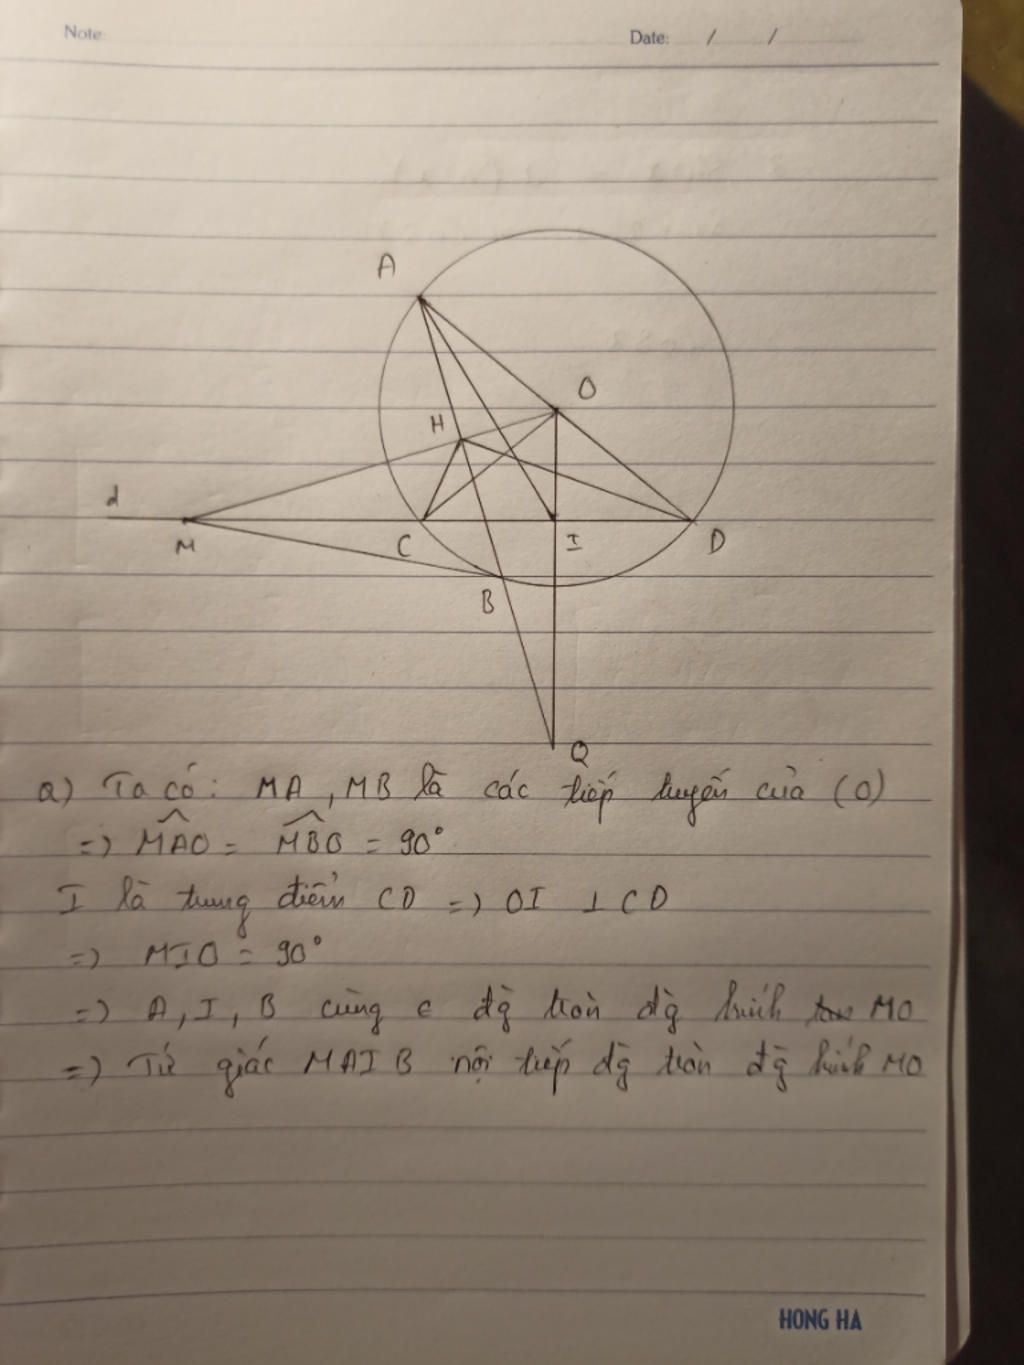 Note:
Date: / /
A
O
H
d
M
C
I
D
B
Q
a) Ta có: MA, MB là các tiếp tuyến của (O)
=) MAO = MBO = 90°
I là trung điểm CD =) OI ⊥ CD
=) MIO = 90°
=) A, I, B cùng ∈ đg̀ tròn đg̀ kính MO
=) Tứ giác MAIB nội tiếp đg̀ tròn đg̀ kính MO
HONG HA